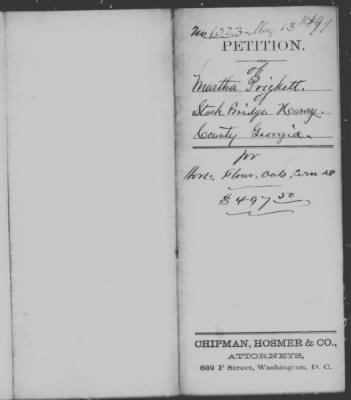 No 1023 May 13 1874
PETITION.
of
Martha Prickett.
of
Stock Bridge Henry.
County Georgia.
for
Horse, Flour, Oats, Corn &c
$497.50
CHIPMAN, HOSMER & CO.,
ATTORNEYS,
632 F Street, Washington, D. C.